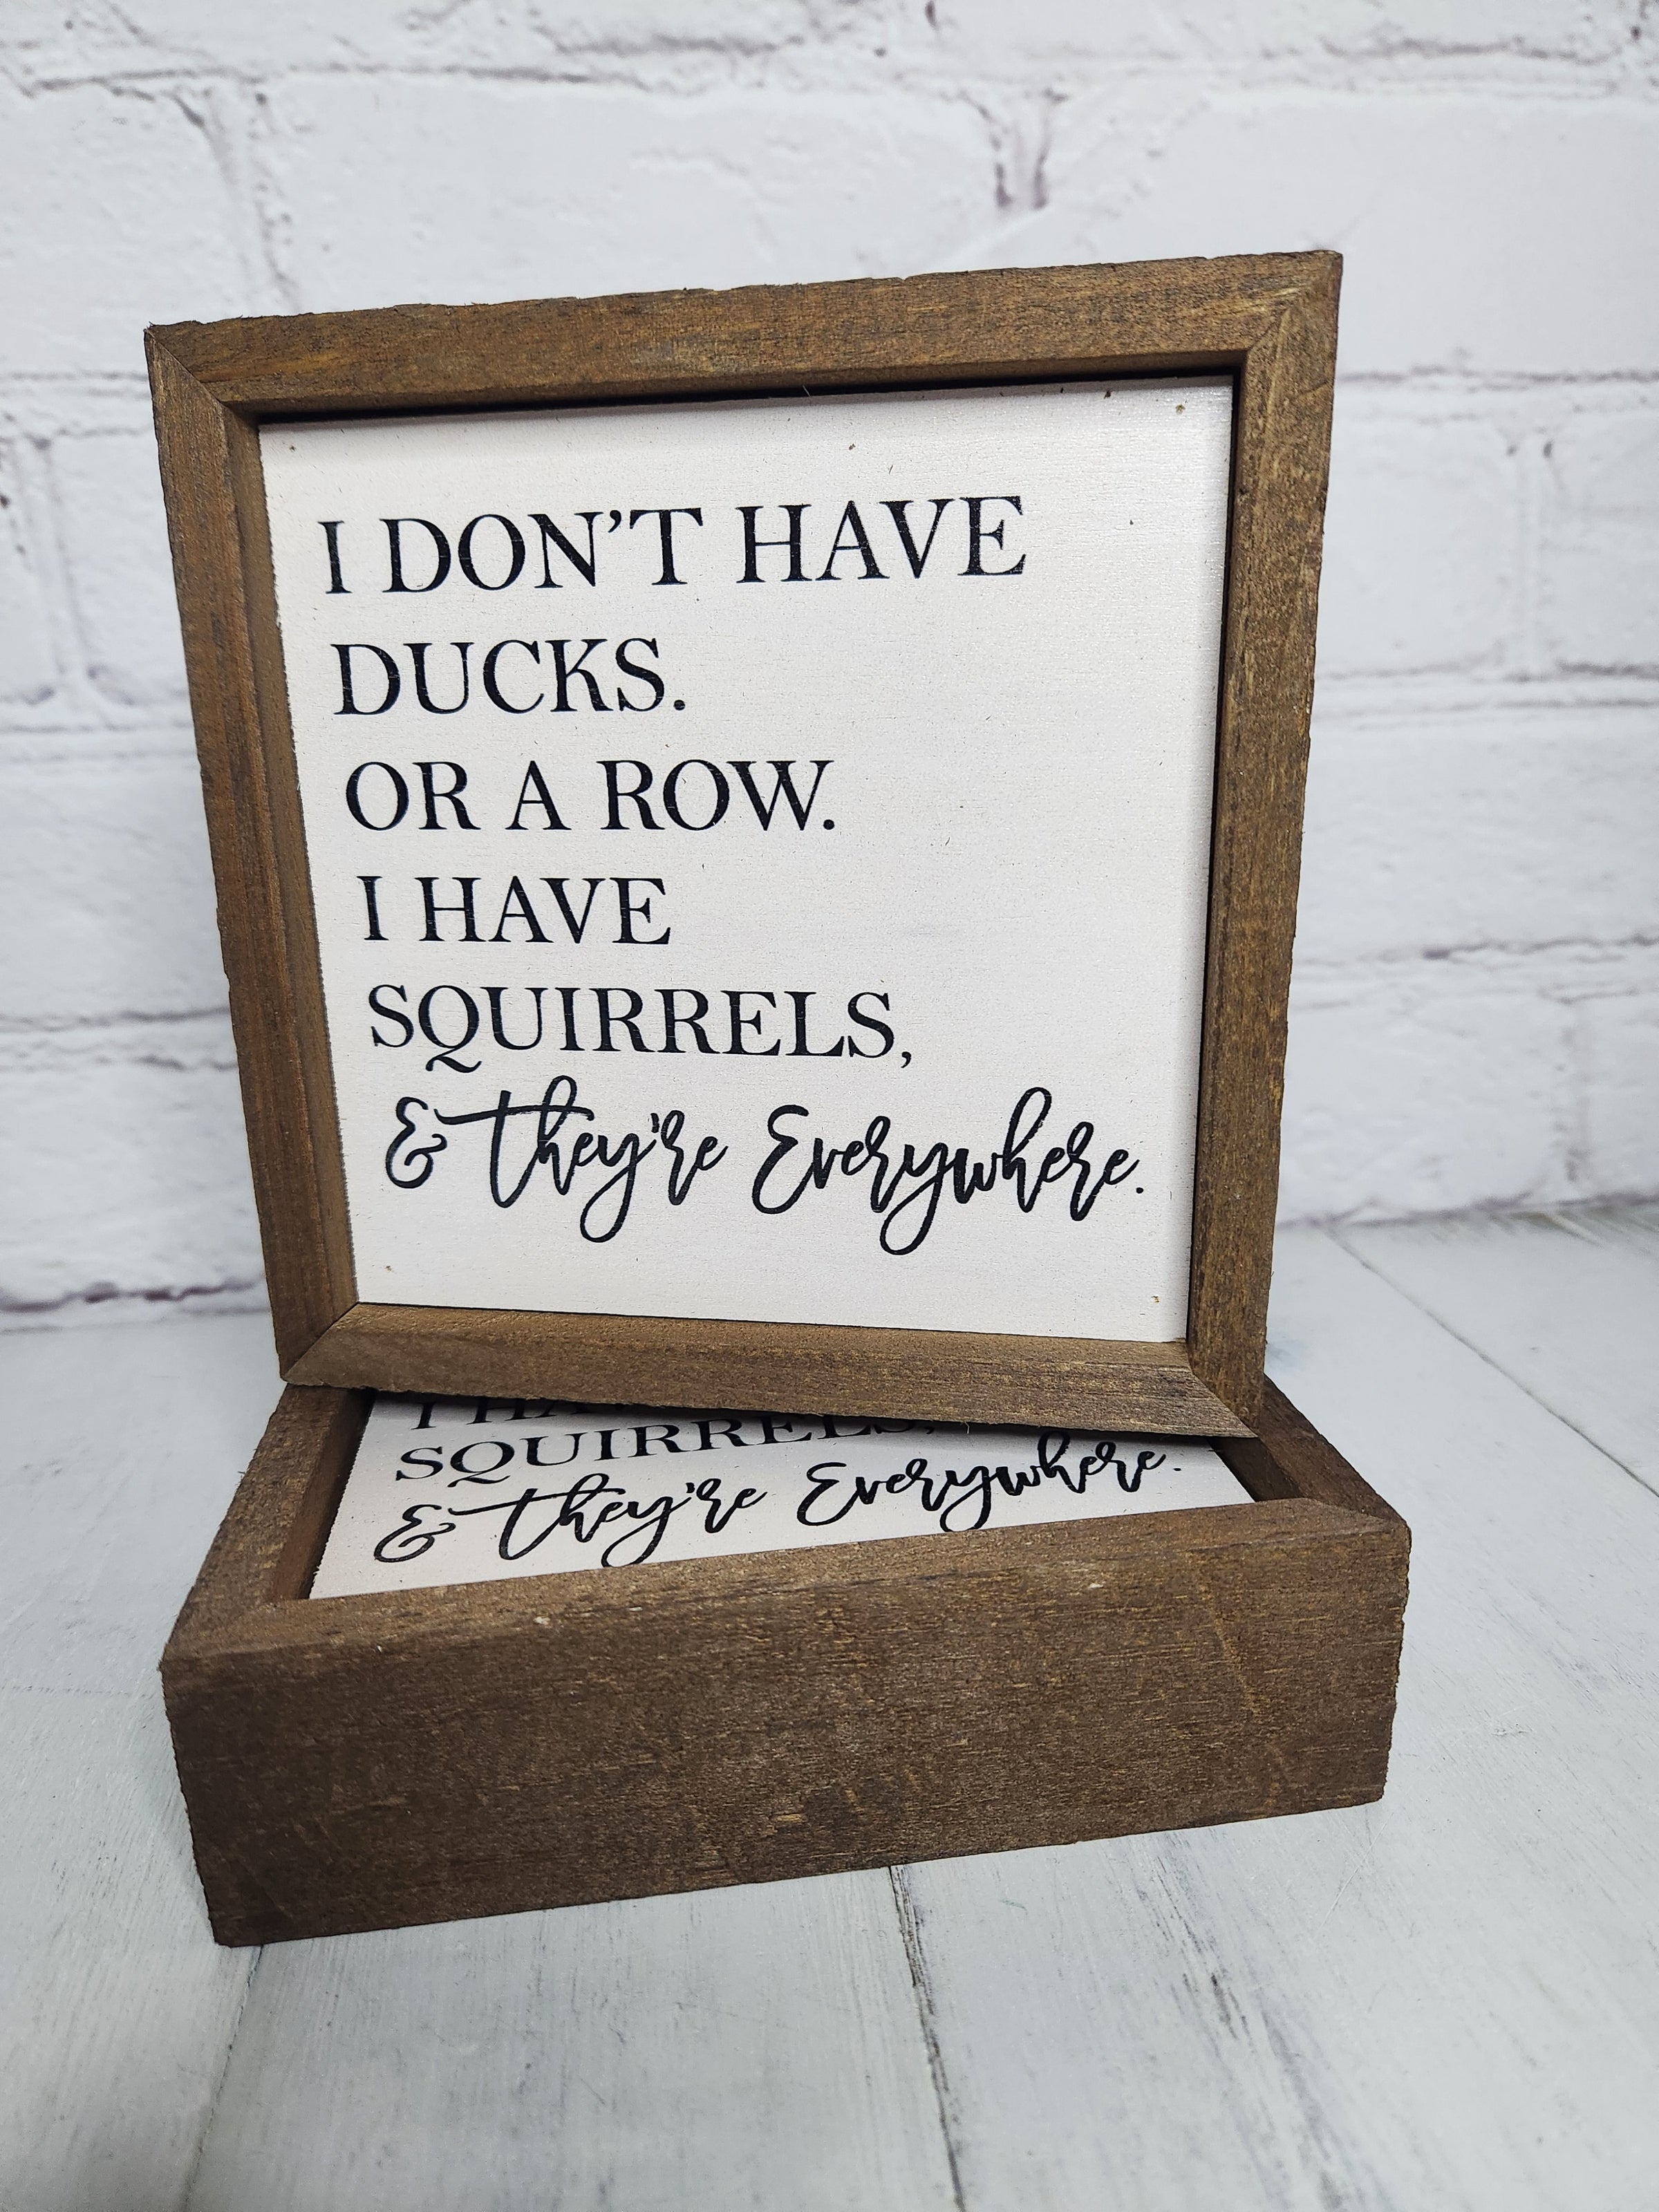 I DON'T HAVE
DUCKS.
OR A ROW.
I HAVE
SQUIRRELS,
& they're Everywhere.
I HA
SQUIRRELS,
& they're Everywhere.